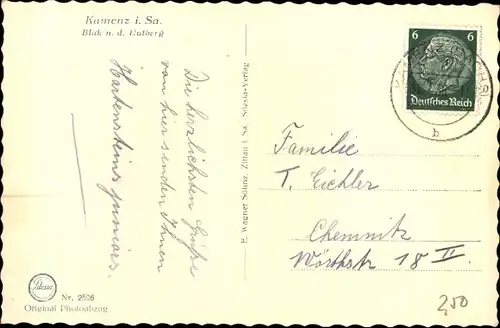 Kamenz i. Sa.
Blick n. d. Hutberg
Die herzlichsten Grüße
von hier senden Ihnen
Hartensteins juniors.
E. Wagner Söhne, Zittau i. Sa. Stiesa-Verlag
6 6
Deutsches Reich
b
Familie
T. Eichler
Chemnitz
Wörthstr 18 II.
Nr. 2506
Original Photoabzug
2,50